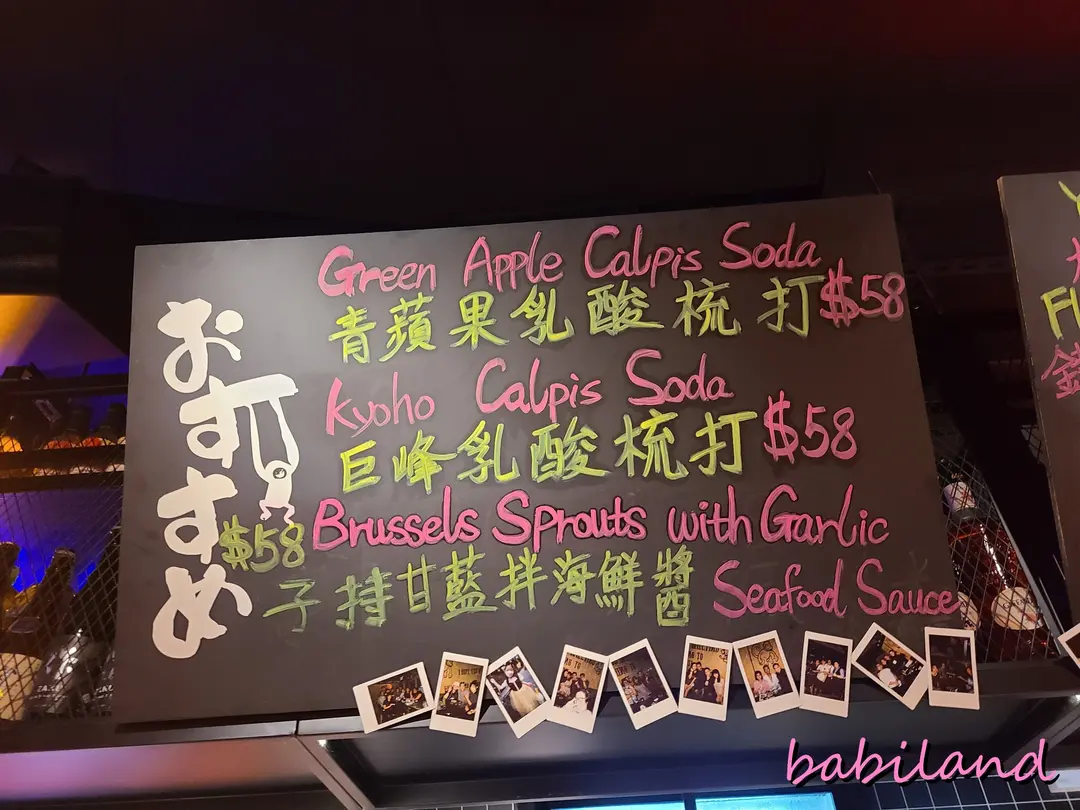 おすすめ
Green Apple Calpis Soda
青蘋果乳酸梳打 $58
Kyoho Calpis Soda
巨峰乳酸梳打 $58
$58 Brussels Sprouts with Garlic
子持甘藍拌海鮮醬 Seafood Sauce
babiland